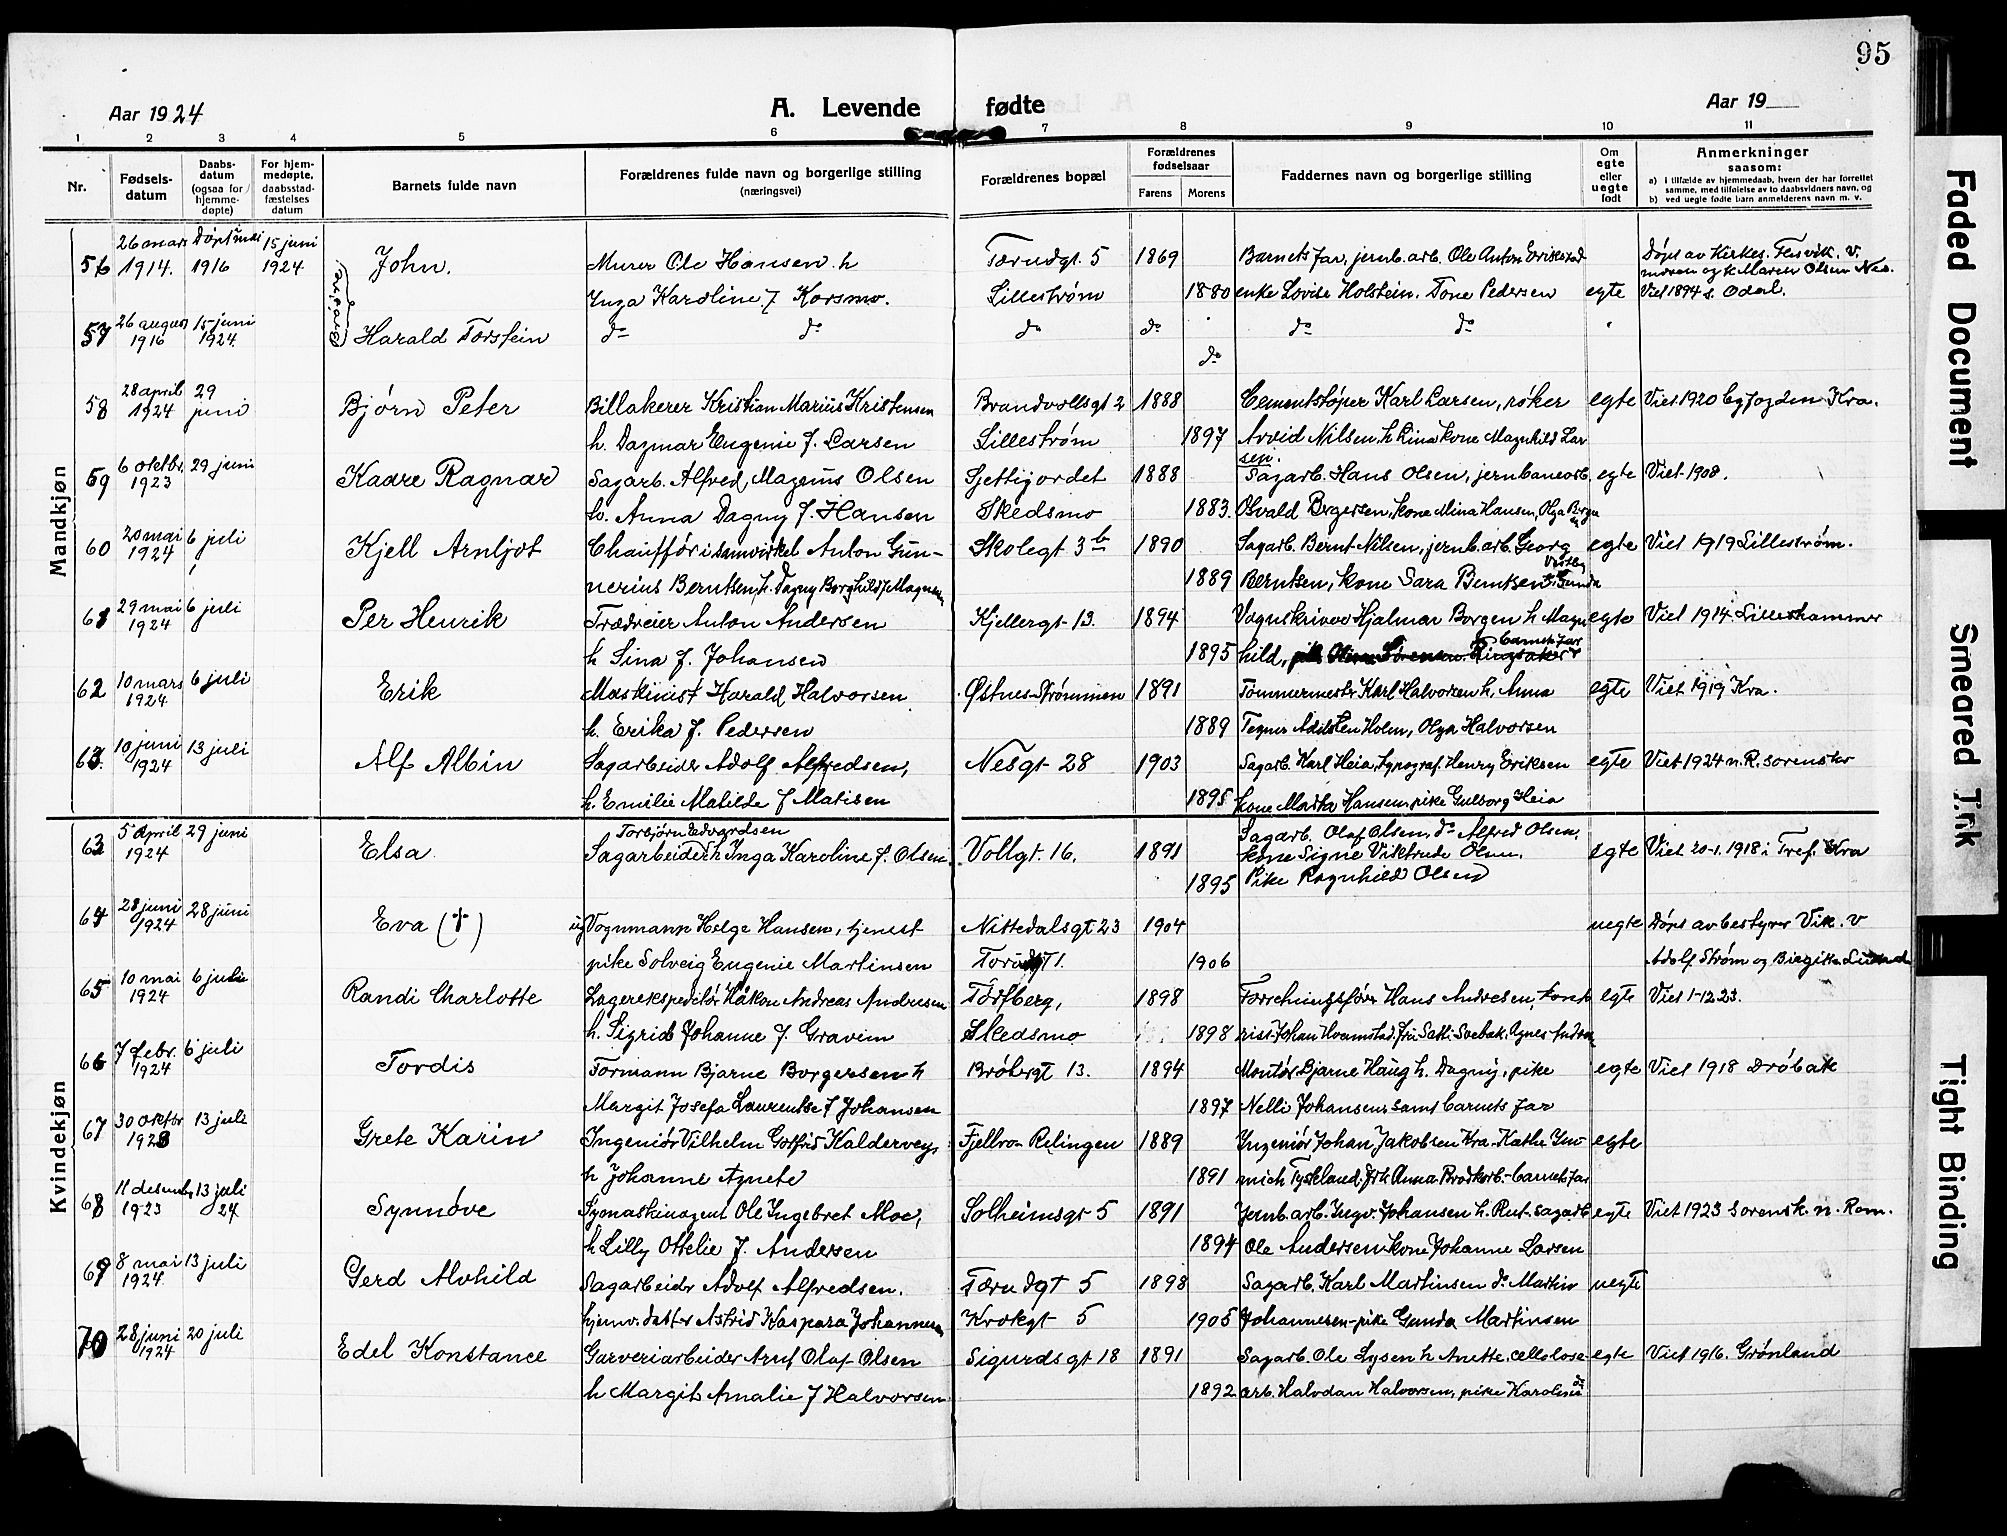 95
Aar 1924
A. Levende fødte
Aar 19
1 2 3 4 5 6 7 8 9 10 11
Nr.
Fødsels-
datum
Daabs-
datum
(ogsaa for
hjemme-
døpte)
For hjem-
medøpte,
daabsstad-
fæstelses
datum
Barnets fulde navn
Forældrenes fulde navn og borgerlige stilling
(næringsvei)
Forældrenes bopæl
Forældrenes
fødselsaar
Farens Morens
Faddernes navn og borgerlige stilling
Om
egte
eller
uegte
født
Anmerkninger
saasom:
a) i tilfælde av hjemmedaab, hvem der har forrettet
samme, med tilføielse av to daabsvidners navn, og
b) ved uegte fødte barn anmelderens navn m. v.
Mandkjøn
26 mars Døpt 15 juni
56 1914. 1916 1924 John. Murer Ole Hansen h Tærudgt. 5 1869 Barnets far, jernb. arb. Ole Anton Døpt av Kirkes. v.
Inga Karoline f Korsmo. Lillestrøm 1880 enke Lovise Holstein. Tone Pedersen egte Viet 1894 s. Odal.
moren og Maren Olsen Nes.
Brødre
57 26 august 15 juni
1916 1924. Harald Torstein do do do do do do
do
58 28 april 29
1924 juni Bjørn Peter Billakerer Kristian Marius Kristensen Brandvollsgt 2 1888 Cementstøper Karl Larsen, røker egte Viet 1920 Kra.
h. Dagmar Eugenie f. Larsen Lillestrøm 1897 Arvid Nilsen, h Lina kone Magnhild Lar
sen.
59 6 oktbr. 29 juni
1923 Kaare Ragnar Sagarb. Alfred Magnus Olsen Sjettijordet 1888 Sagarb. Hans Olsen, jernbanearb. egte Viet 1908.
h. Anna Dagny f. Hansen Skedsmo 1883. Osvald Bergersen, kone Mina Hansen, Olga
60 20 mai 6 juli
1924 Kjell Arnljot Chauffør i samvirkel Anton Gun- Skolegt 3b 1890 Sagarb. Bernt Nilsen, jernb. arb. Georg egte Viet 1919 Lillestrøm.
nerius Berntsen, h. Dagny Borghild f Magnusen 1889 Berntsen, kone Sara Berntsen Gunda
61 29 mai 6 juli
1924 Per Henrik Trædreier Anton Andersen Kjellergt 13. 1894 Vognskriver Hjalmar Borgen h Magn egte Viet 1914 Lillehammer
h Sina f. Johansen 1895 hild, barnets far
62 10 mars 6 juli
1924 Erik Maskinist Harald Halvorsen Østnes-Strømmen 1891 Tømmermester Karl Halvorsen h. Anna egte Viet 1919 Kra.
h. Erika f. Pedersen 1889 Tegner Adelsten Holm, Olga Halvorsen
63. 10 juni 13 juli
1924 Alf Albin Sagarbeider Adolf Alfredsen, Nesgt 28 1903 Sagarb. Karl Heia, typograf. Henry Eriksen egte Viet 1924 n. R. sorenskr
h. Emilie Matilde f Matisen 1895 kone Marta Hansen, pike Gulborg Heia
Kvindekjøn
63 5 april 29 juni
1924 Elsa Torbjørn Edvardsen
Sagarbeider h Inga Karoline f. Olsen Vollgt. 16. 1891 Sagarb. Olaf Olsen, do Alfred Olsen,
kone Signe Viktrude Olsen. egte Viet 20-1. 1918 i Tref. Kra
1895 Pike Ragnhild Olsen
64 28 juni 28 juni
1924 Eva (†) ug Vognmann Helge Hansen, tjenest Nittedalsgt 23 1904 uegte Døpt av bestyrer Vik. v
pike Solveig Eugenie Martinsen 1906 Adolf Strøm og Birgitte
65 10 mai 6 juli
1924 Randi Charlotte Lagerekspeditør Håkon Andreas Andresen Torfberg, 1898 Forretningsfører Hans Andresen, kont egte Viet 1-12 23.
h. Sigrid Johanne f. Gravim Skedsmo 1898 rist Johan Hvamstad
66 7 febr. 6 juli
1924 Tordis Formann Bjarne Borgersen h Brøtergt 13. 1894 Montør Bjarne Haug h. Dagny, pike egte Viet 1918 Drøbak
Margit Josefa Laurentse f Johansen 1897 Nelli Johansen samt barnets far
67 30 oktbr 13 juli
1923 Grete Karin Ingeniør Vilhelm Gotfrid Fjellvo- Relingen 1889 Ingeniør Johan Jakobsen Kra. egte
h Johanne Agnete 1891 Tyskland. Anna barnets far
68 11 desembr 13 juli
1923 24 Synnøve Symaskinagent Ole Ingebret Moe, Solheimsgt 5 1891 Jernb. arb. Ingv. Johansen h. Rut. sagarb egte Viet 1923 sorensk. n. Rom.
h Lilly Ottelie f. Andersen 1894 Ole Andersen kone Johanne Larsen
69 8 mai 13 juli
1924. Gerd Alvhild Sagarbeider Adolf Alfredsen. Tærudgt 5 1898 Sagarb. Karl Martinsen do Martin uegte
hjemv. datter Astrid Kaspara Johannesen Krokgt 5 1905 Johannesen-pike Gunda Martinsen
70 28 juni 20 juli
1924 Edel Konstance Garveriarbeider Arnt Olaf Olsen Sigurdsgt 18 1891 Sagarb. Ole Lysen h Anette. cellulose egte Viet 1916. Grønland
h Margit Amalie f Halvorsen 1892 arb. Halvdan Halvorsen, pike Karoline do
Faded Document
Smeared Ink
Tight Binding